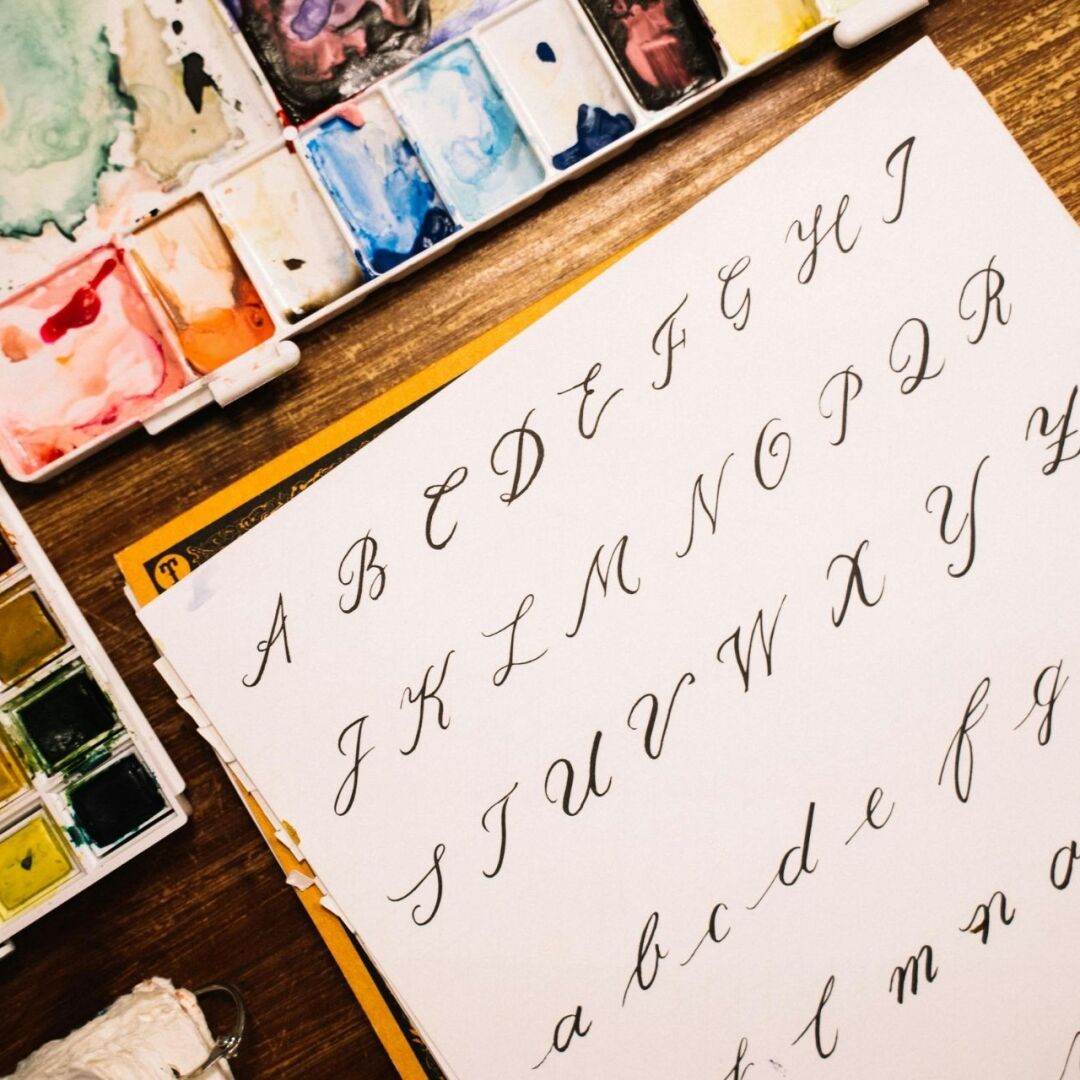 A B C D E F G H I
J K L M N O P Q R
S T U V W X Y Z
a b c d e f g
l m n o
T